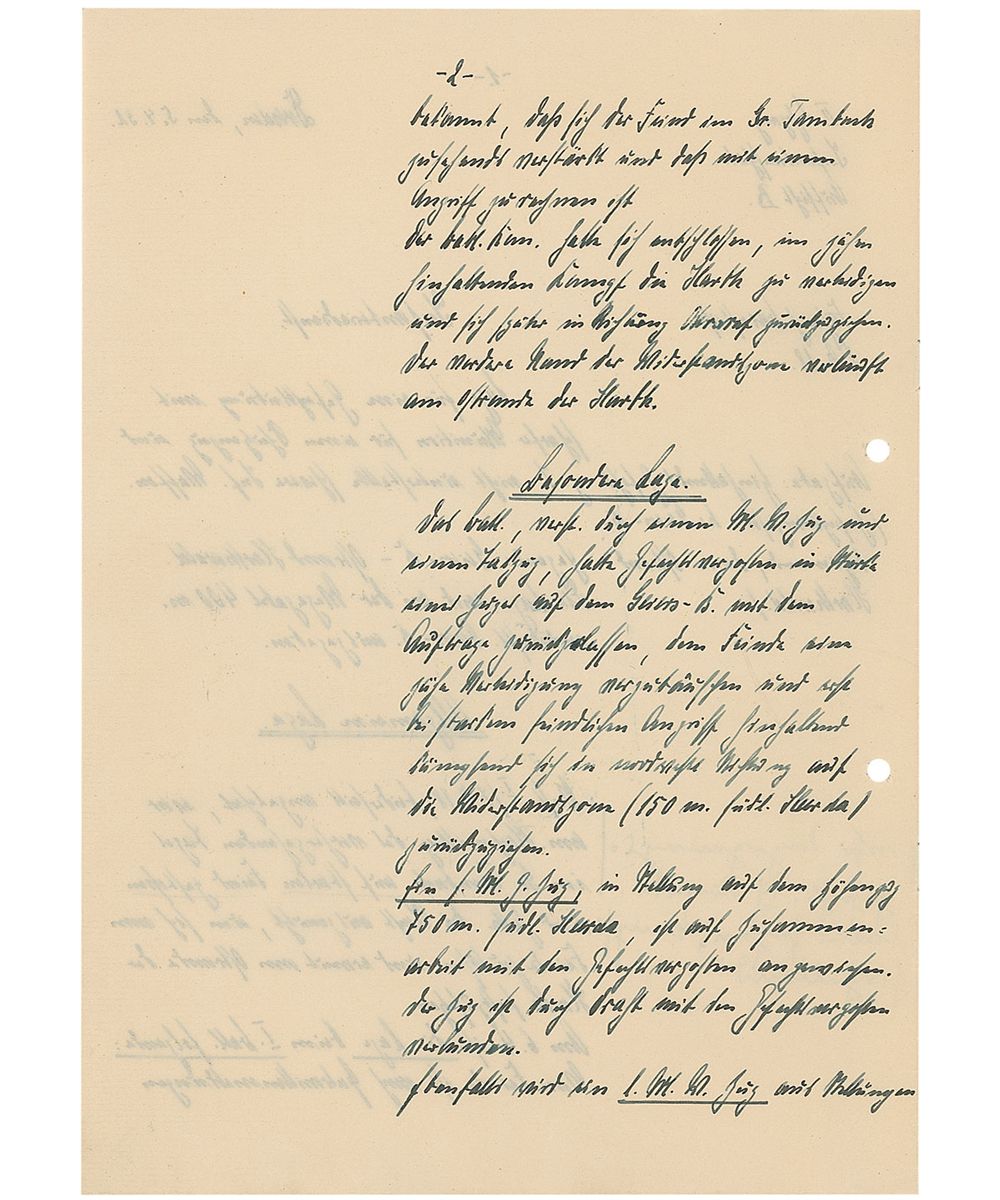 -2-
bekannt, daß sich der Feind im Gr. Tambach
zusehends verstärkt und daß mit einem
Angriff zu rechnen ist
Der Batl. Kom. hatte sich entschlossen, im zähen
hinhaltenden Kampf die Harth zu verteidigen
und sich später in Richtung Ohrdruf zurückzuziehen.
Der vordere Rand der Widerstandszone verläuft
am Ostrande der Harth.
Besondere Lage.
Das Batl., verst. durch einen M. W. Zug und
einen Takzug, hatte Gefechtsvorposten in Stärke
einer auf dem mit dem
Auftrage zurückgelassen, dem Feinde eine
zähe Verteidigung vorzutäuschen und erst
bei starkem feindlichen Angriff hinhaltend
kämpfend sich in nordwestl. Richtung auf
die Widerstandszone (150 m. südl. Herda)
zurückzuziehen.
Ein s. M. G. Zug, in Stellung auf dem Höhenzug
750 m. südl. Herda, ist auf Zusammen=
arbeit mit den Gefechtsvorposten angewiesen.
Der Zug ist durch Draht mit den Gefechtsvorposten
verbunden.
Ebenfalls wird ein l. M. W. Zug aus Stellungen